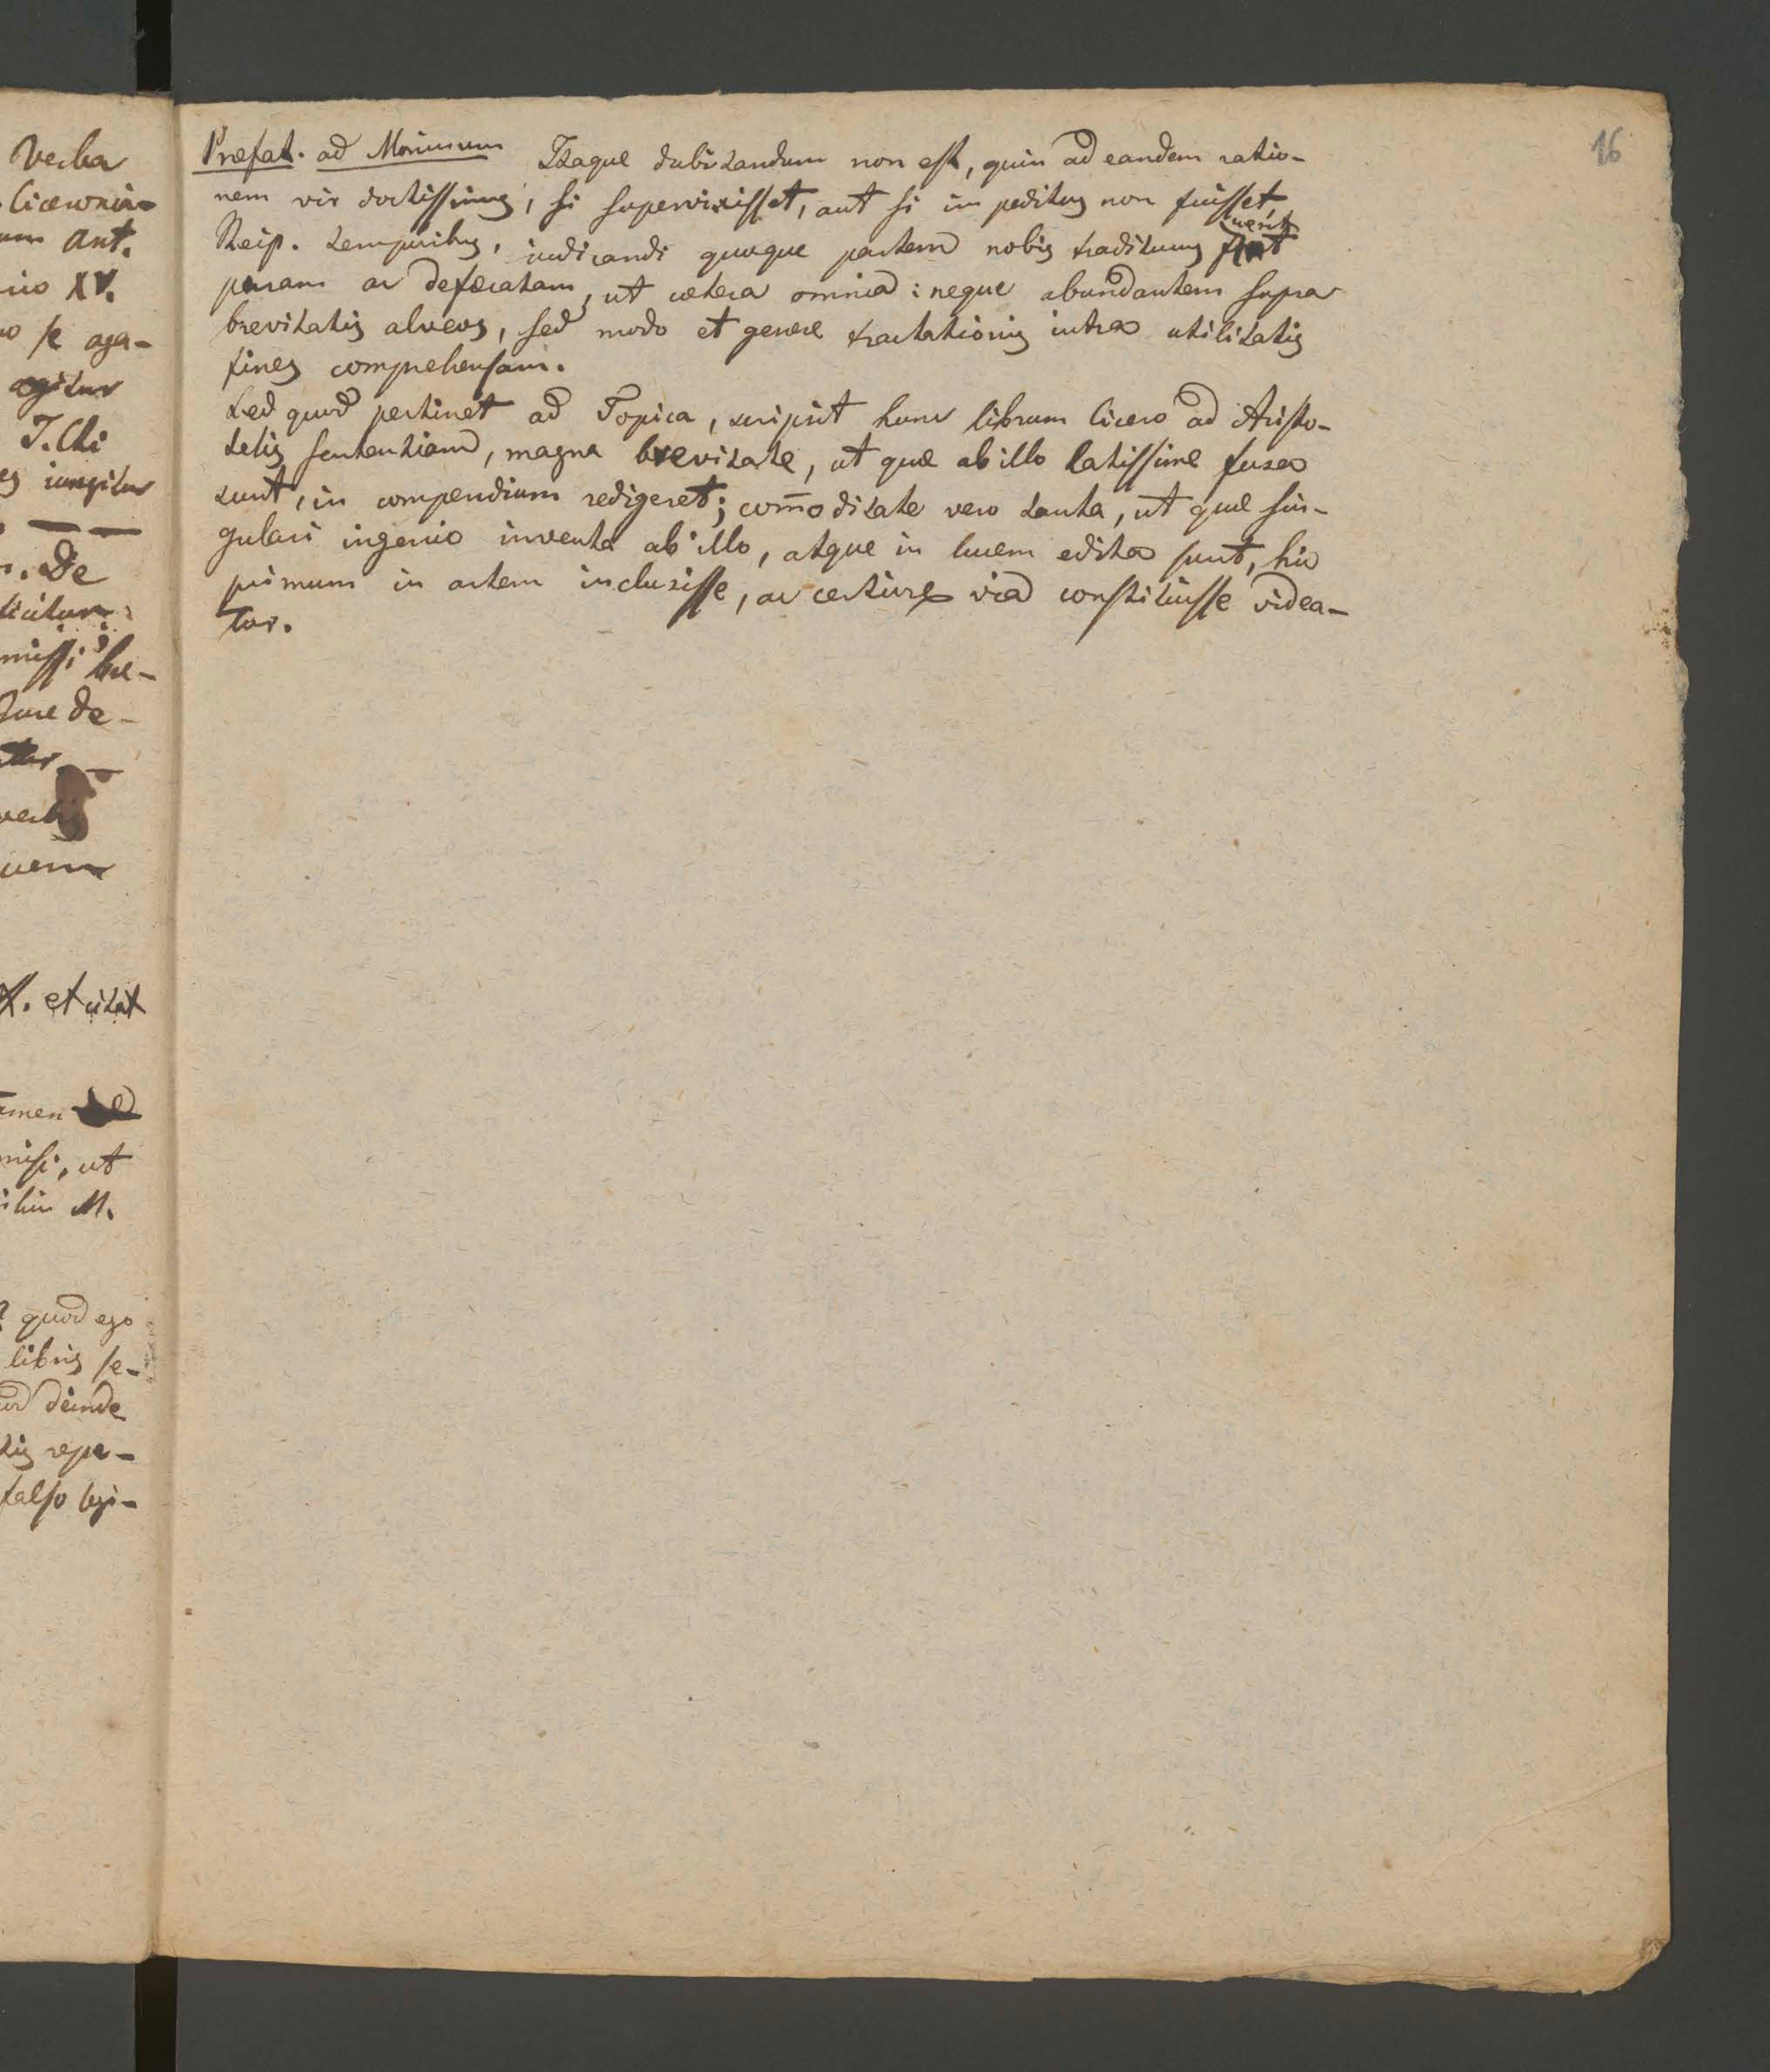 Verba
Ciceronia-
um ant.
XV.
se aga-
agitur
J.Cti
iungitur
De
hae-
de-
X. et citat
nisi, ut
M.
quod ego
libris se-
deinde
repe-
falso legi-
16
Præfat. ad Morinum Itaque dubitandum non est, quin ad eandem ratio-
nem vir doctissimus, si supervixisset, aut si impeditus non fuisset
Reip. temporibus, iudicandi quoque partem nobis traditurus fuerit
puram ac defæcatam, ut cætera omnia: neque abundantem supra
brevitatis alveos, sed modo et genere tractationis intra utilitatis
fines comprehensam.
Sed quod pertinet ad Topica, scripsit hunc librum Cicero ad Aristo-
telis sententiam, magna brevitate, ut quæ ab illo latissime fusa
sunt, in compendium redigeret; com̄oditate vero tanta, ut quæ sin-
gulari ingenio inventa ab illo, atque in lucem edita sunt, hic
primum in artem inclusisse, ac certiore via constituisse videa-
tur.